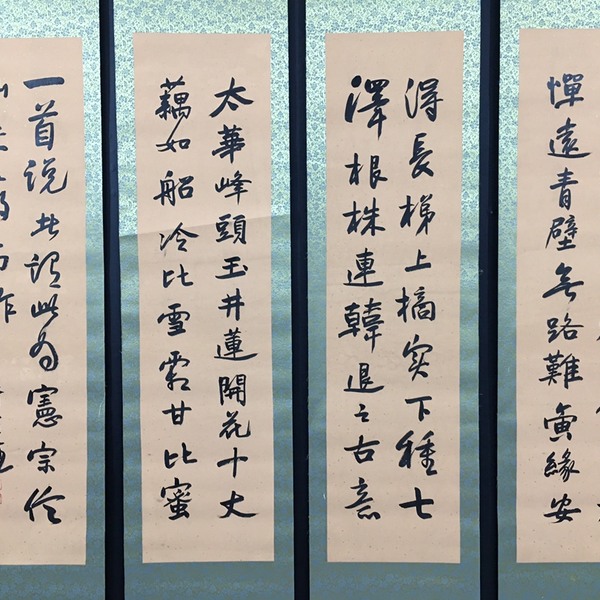 憚遠青壁無路難夤緣安
得長梯上摘实下種七
澤根株連韓退之古意
太華峰頭玉井蓮開花十丈
藕如船冷比雪霜甘比蜜
一首说者谓此为憲宗
而作